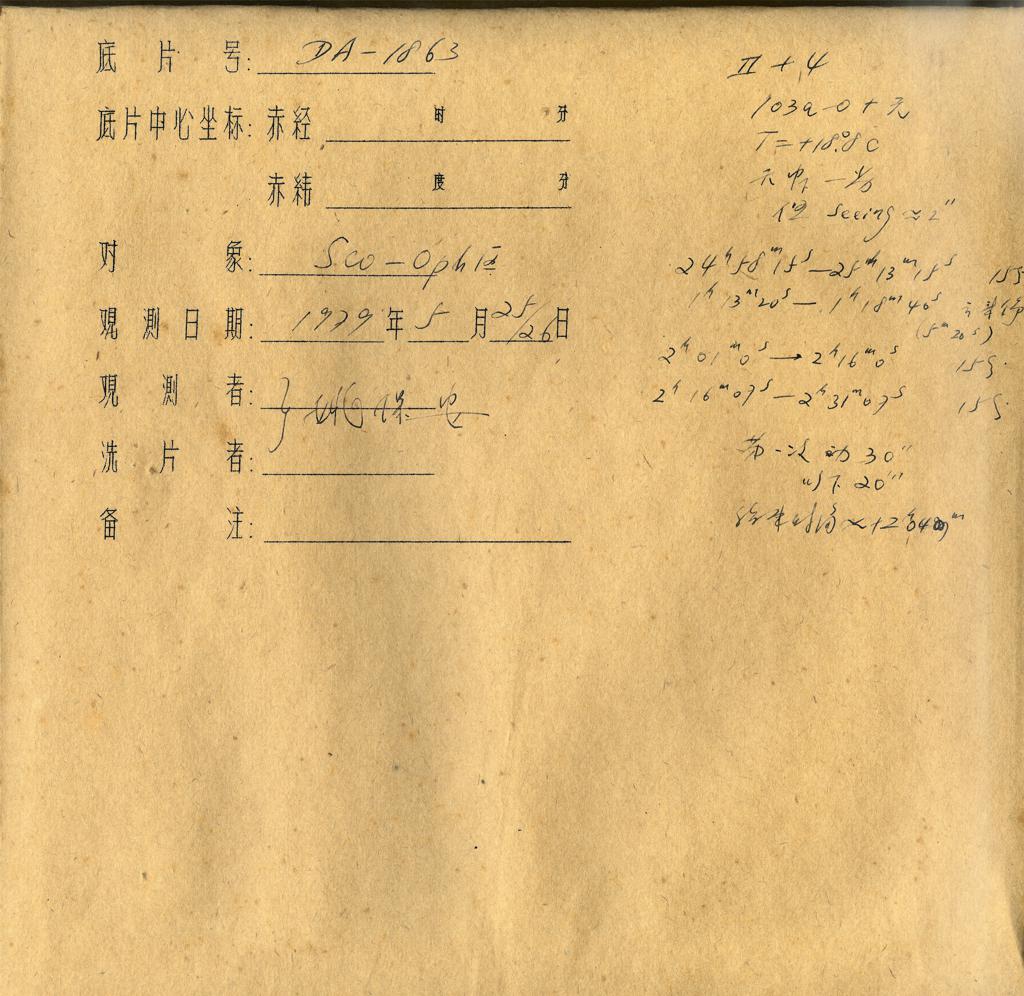 底片号: DA-1863
底片中心坐标: 赤经 时 分
赤纬 度 分
对象: Sco-Oph区
观测日期: 1979年5月25/26日
观测者: 保
洗片者:
备注:
II + 4
103a-O + 无
T=+18°.8C
seeing ≈ 2"
24ʰ58ᵐ15ˢ—25ʰ13ᵐ15ˢ 15分
1ʰ13ᵐ20ˢ— 1ʰ18ᵐ40ˢ 云来停
(5ᵐ20ˢ)
2ʰ01ᵐ0ˢ→2ʰ16ᵐ0ˢ 15分.
2ʰ16ᵐ07ˢ—2ʰ31ᵐ07ˢ 15分.
第一次动30"
以下20"